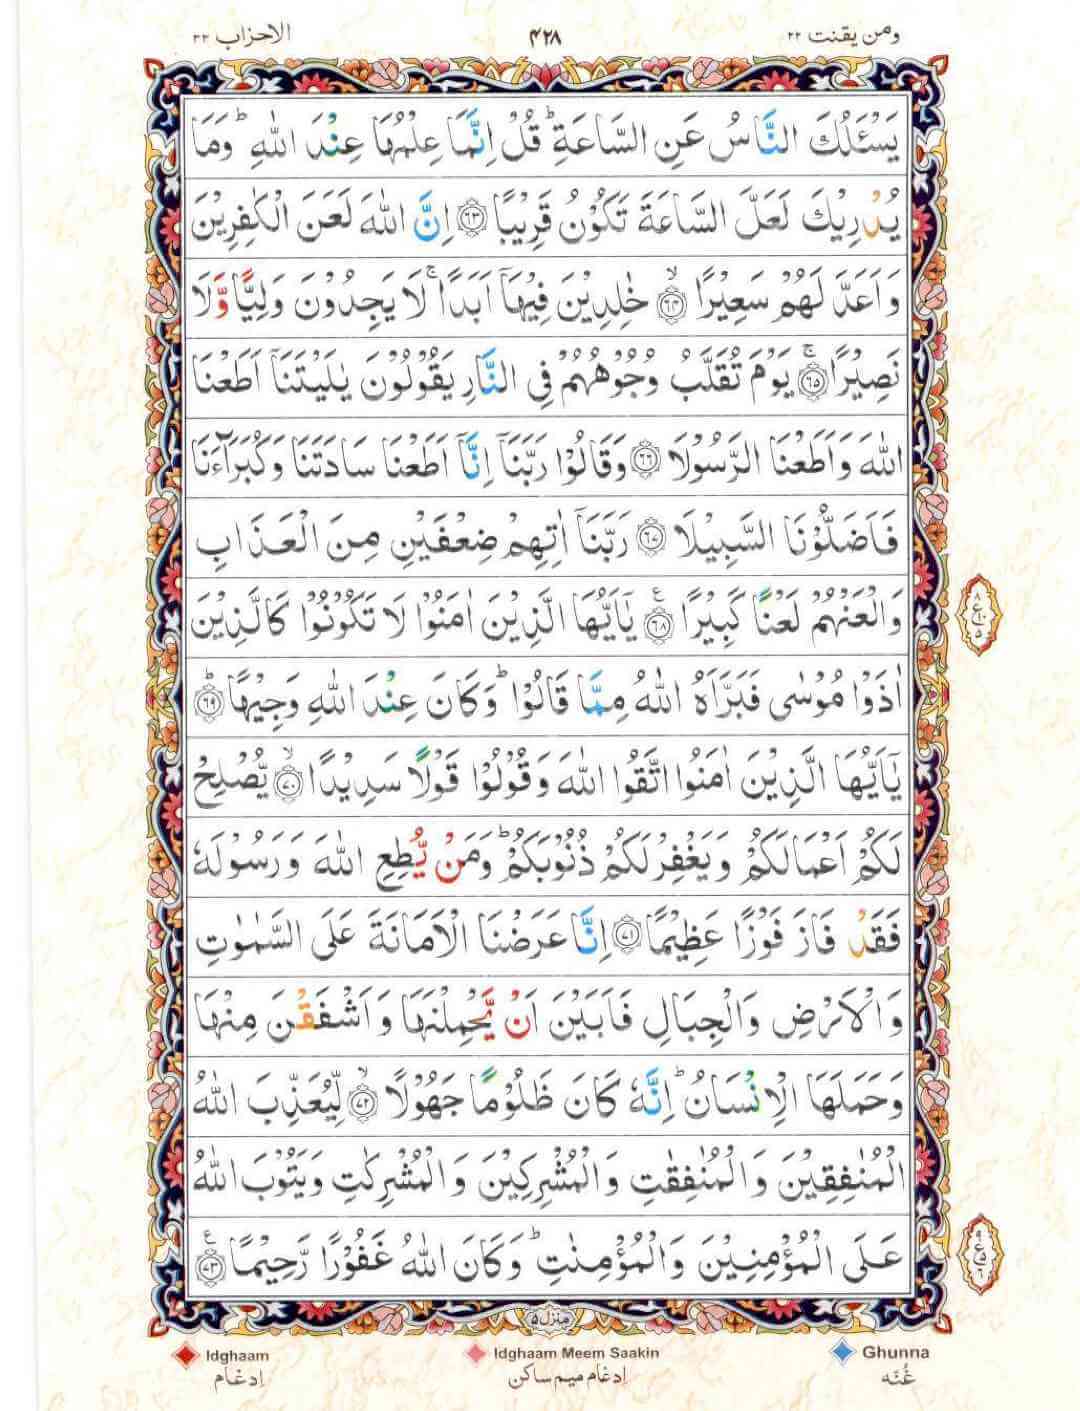 ومن يقنت ٢٢
٤٢٨
الاحزاب ٣٣
يَسْـَٔلُكَ النَّاسُ عَنِ السَّاعَةِ ؕ قُلْ اِنَّمَا عِلْمُهَا عِنْدَ اللّٰهِ ؕ وَمَا
يُدْرِيْكَ لَعَلَّ السَّاعَةَ تَكُوْنُ قَرِيْبًا ﴿٦٣﴾ اِنَّ اللّٰهَ لَعَنَ الْكٰفِرِيْنَ
وَاَعَدَّ لَهُمْ سَعِيْرًا ۙ﴿٦٤﴾ خٰلِدِيْنَ فِيْهَاۤ اَبَدًا ۚ لَا يَجِدُوْنَ وَلِيًّا وَّلَا
نَصِيْرًا ۚ﴿٦٥﴾ يَوْمَ تُقَلَّبُ وُجُوْهُهُمْ فِي النَّارِ يَقُوْلُوْنَ يٰلَيْتَنَاۤ اَطَعْنَا
اللّٰهَ وَاَطَعْنَا الرَّسُوْلَا ﴿٦٦﴾ وَقَالُوْا رَبَّنَاۤ اِنَّاۤ اَطَعْنَا سَادَتَنَا وَكُبَرَآءَنَا
فَاَضَلُّوْنَا السَّبِيْلَا ﴿٦٧﴾ رَبَّنَاۤ اٰتِهِمْ ضِعْفَيْنِ مِنَ الْعَذَابِ
وَالْعَنْهُمْ لَعْنًا كَبِيْرًا ﴿٦٨﴾ يٰۤاَيُّهَا الَّذِيْنَ اٰمَنُوْا لَا تَكُوْنُوْا كَالَّذِيْنَ
اٰذَوْا مُوْسٰى فَبَرَّاَهُ اللّٰهُ مِمَّا قَالُوْا ؕ وَكَانَ عِنْدَ اللّٰهِ وَجِيْهًا ؕ﴿٦٩﴾
يٰۤاَيُّهَا الَّذِيْنَ اٰمَنُوا اتَّقُوا اللّٰهَ وَقُوْلُوْا قَوْلًا سَدِيْدًا ۙ﴿٧٠﴾ يُّصْلِحْ
لَكُمْ اَعْمَالَكُمْ وَيَغْفِرْ لَكُمْ ذُنُوْبَكُمْ ؕ وَمَنْ يُّطِعِ اللّٰهَ وَرَسُوْلَهٗ
فَقَدْ فَازَ فَوْزًا عَظِيْمًا ﴿٧١﴾ اِنَّا عَرَضْنَا الْاَمَانَةَ عَلَى السَّمٰوٰتِ
وَالْاَرْضِ وَالْجِبَالِ فَاَبَيْنَ اَنْ يَّحْمِلْنَهَا وَاَشْفَقْنَ مِنْهَا
وَحَمَلَهَا الْاِنْسَانُ ؕ اِنَّهٗ كَانَ ظَلُوْمًا جَهُوْلًا ۙ﴿٧٢﴾ لِّيُعَذِّبَ اللّٰهُ
الْمُنٰفِقِيْنَ وَالْمُنٰفِقٰتِ وَالْمُشْرِكِيْنَ وَالْمُشْرِكٰتِ وَيَتُوْبَ اللّٰهُ
عَلَى الْمُؤْمِنِيْنَ وَالْمُؤْمِنٰتِ ؕ وَكَانَ اللّٰهُ غَفُوْرًا رَّحِيْمًا ﴿٧٣﴾
منزل ٥
Idghaam
Idghaam Meem Saakin
Ghunna
اِدغام
اِدغام ميم ساكن
غُنّه